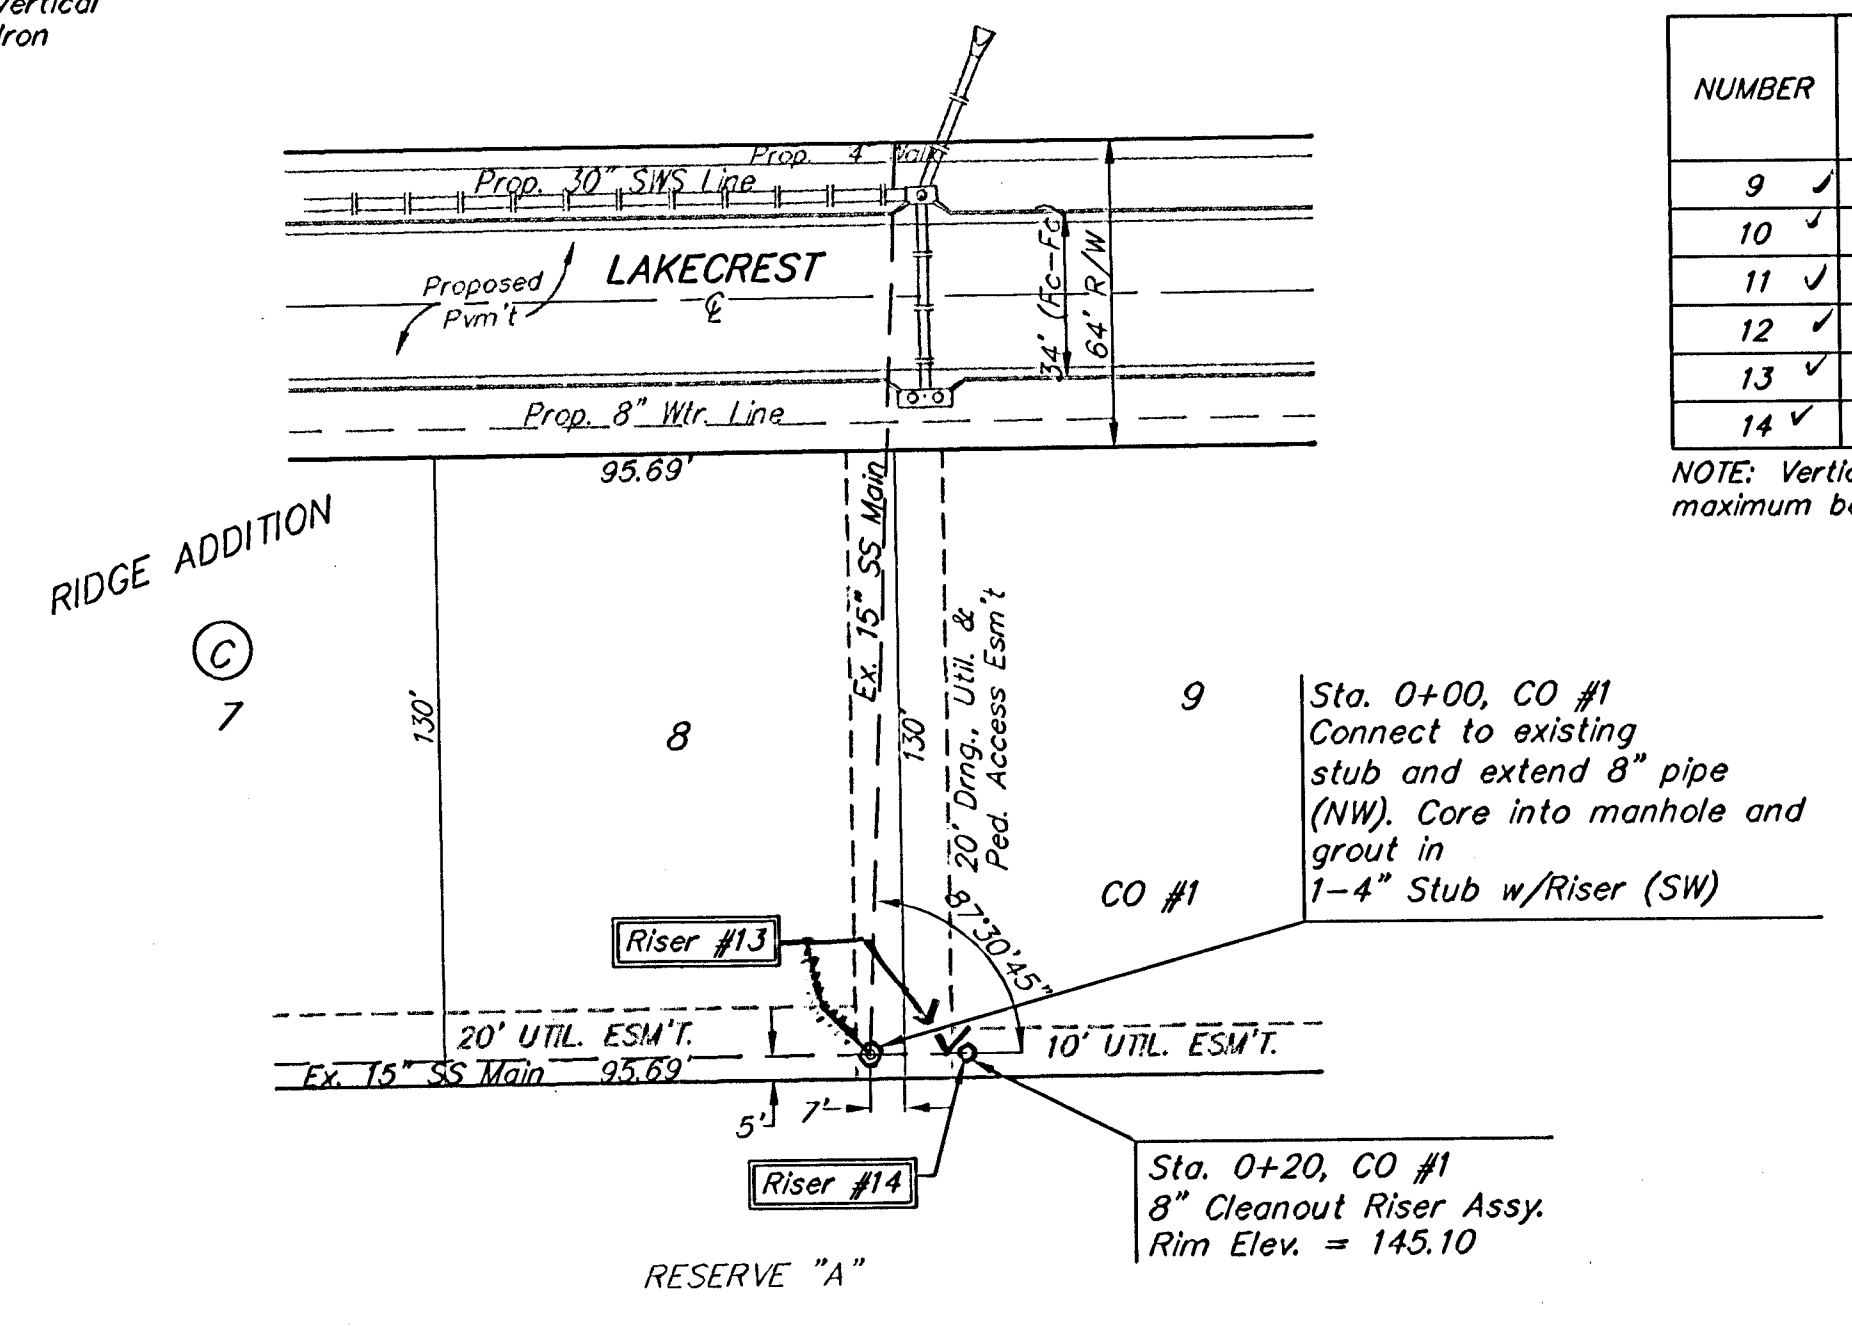 vertical
Iron
NUMBER
9
10
11
12
13
14
NOTE:
maximum
Prop. 4' Walk
Prop. 30" SWS Line
LAKECREST
Proposed
Pvm't
34' (Fc-Fc
64' R/W
Prop. 8" Wtr. Line
95.69'
RIDGE ADDITION
C
7
130'
8
Ex. 15" SS Main
130'
20' Drng., Util. &
Ped. Access Esm't
9
Sta. 0+00, CO #1
Connect to existing
stub and extend 8" pipe
(NW). Core into manhole and
grout in
1-4" Stub w/Riser (SW)
CO #1
87°30'45"
Riser #13
20' UTIL. ESM'T.
10' UTIL. ESM'T.
Ex. 15" SS Main 95.69'
5'
7'
Riser #14
Sta. 0+20, CO #1
8" Cleanout Riser Assy.
Rim Elev. = 145.10
RESERVE "A"